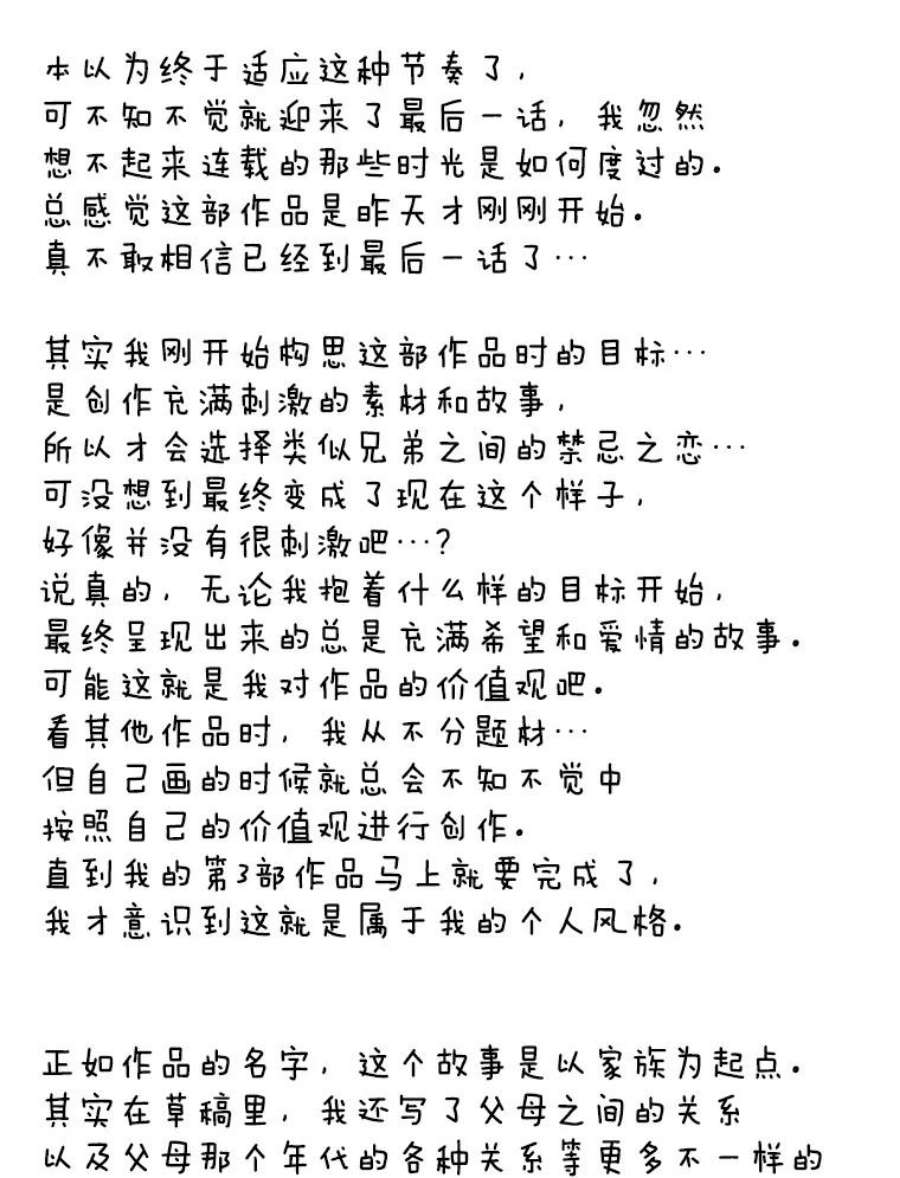 本以为终于适应这种节奏了，
可不知不觉就迎来了最后一话，我忽然
想不起来连载的那些时光是如何度过的。
总感觉这部作品是昨天才刚刚开始。
真不敢相信已经到最后一话了…
其实我刚开始构思这部作品时的目标…
是创作充满刺激的素材和故事，
所以才会选择类似兄弟之间的禁忌之恋…
可没想到最终变成了现在这个样子，
好像并没有很刺激吧…？
说真的，无论我抱着什么样的目标开始，
最终呈现出来的总是充满希望和爱情的故事。
可能这就是我对作品的价值观吧。
看其他作品时，我从不分题材…
但自己画的时候就总会不知不觉中
按照自己的价值观进行创作。
直到我的第3部作品马上就要完成了，
我才意识到这就是属于我的个人风格。
正如作品的名字，这个故事是以家族为起点。
其实在草稿里，我还写了父母之间的关系
以及父母那个年代的各种关系等更多不一样的